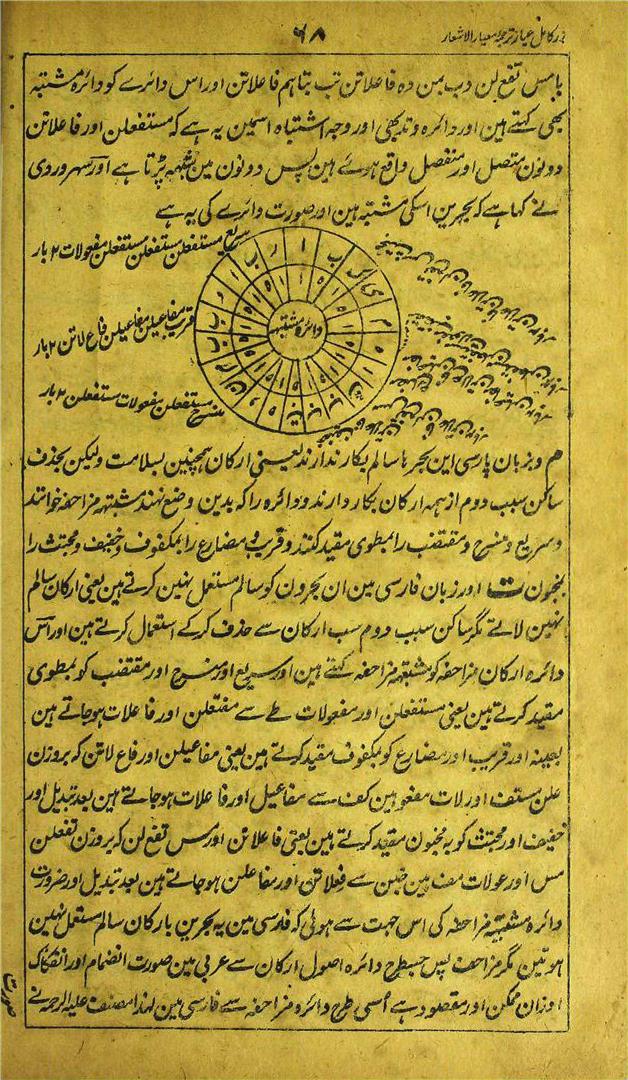 زر کامل عیار ترجمہ معیار الاشعار
۶۸
یا مس تفع لن دب بمن ده فاعلاتن تب بتا ہم فاعلاتن اور اس دائرے کو دائرہ مشتبہ
بھی کہتے ہین اور دائرہ و تدبھی اور وجہ اشتباہ اسمین یہ ہے کہ مستفعلن اور فاعلاتن
دونون متصل اور منفصل واقع ہوئے ہین پس دونون مین شبہہ پڑتا ہے اور سہروردی
نے کہا ہے کہ بحرین اسکی مشتبہ ہین اور صورت دائرے کی یہ ہے
سریع مستفعلن مستفعلن مفعولات ۲ بار
قریب مفاعیلن مفاعیلن فاع لاتن ۲ بار
منسرح مستفعلن مفعولات مستفعلن ۲ بار
دائرہ مشتبہ
م و بزبان پارسی این بحرہا سالم بکار ندارند یعنی ارکان ہمچنین بسلامت ولیکن بحذف
ساکن سبب دوم از ہمہ ارکان بکار دارند و دائرہ را کہ بدین وضع نہند مشتبہہ مزاحفہ خوانند
و سریع و منسرح و مقتضب را بمطوی مقید کنند و قریب و مضارع را بمکفوف و خفیف و مجتث را
بمخبون ت اور زبان فارسی مین ان بحرون کو سالم مستعمل نہین کرتے ہین یعنی ارکان سالم
نہین لاتے مگر ساکن سبب دوم سب ارکان سے حذف کرکے استعمال کرتے ہین اور اس
دائرہ ارکان مزاحفہ کو مشتبہہ مزاحفہ کہتے ہین اور سریع اور منسرح اور مقتضب کو بمطوی
مقید کرتے ہین یعنی مستفعلن اور مفعولات طے سے مفتعلن اور فاعلات ہوجاتے ہین
بعینہ اور قریب اور مضارع کو بمکفوف مقید کرتے ہین یعنی مفاعیلن اور فاع لاتن کہ بروزن
علن مستف اور لات مفعو ہین کف سے مفاعیل اور فاعلات ہوجاتے ہین بعد تبدیل اور
خفیف اور مجتث کو بہ مخبون مقید کرتے ہین یعنی فاعلاتن اور مس تفع لن کہ بروزن تفعلن
مس اور عولات مف ہین خبن سے فعلاتن اور مفاعلن ہوجاتے ہین بعد تبدیل اور ضرورت
دائرہ مشتبہ مزاحفہ کی اس جہت سے ہوئی کہ فارسی مین یہ بحرین بارکان سالم مستعمل نہین
ہوتین مگر مزاحف پس جسطرح دائرہ اصول ارکان سے عربی مین صورت انضمام اور انفکاک
اوزان ممکن اور مقصود ہے اُسی طرح دائرہ مزاحفہ سے فارسی مین لہذا مصنف علیہ الرحمہ نے
صورت